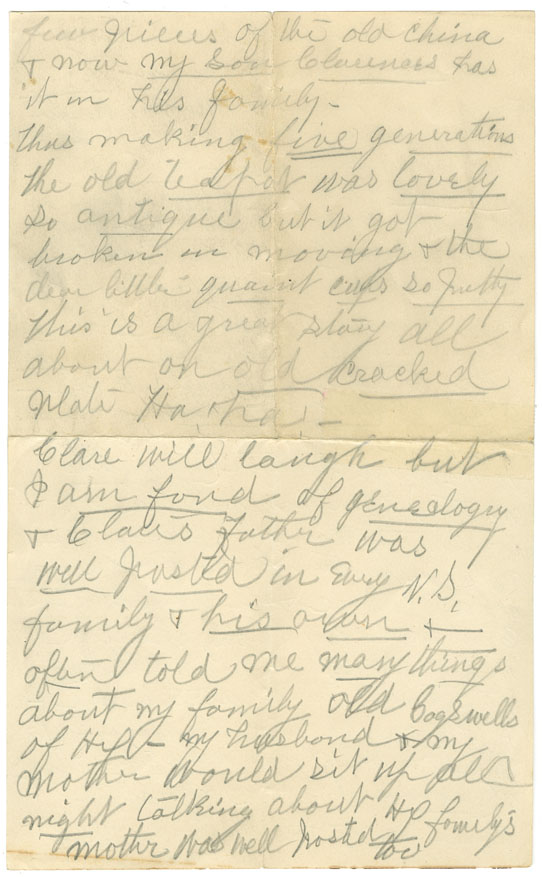 few pieces of the old china
& now my Son Clarences has
it in his family -
thus making five generations
the old teapot was lovely
so antique but it got
broken in moving & the
dear little quaint cups so pretty
this is a great story all
about an old cracked
plate Ha, ha! -
Clare will laugh but
I am fond of geneology
& Clares Father was
well posted in Every N.S,
family & his own &
often told me many things
about my family old Cogswells
of Hfx - my husband & my
mother would sit up all
night talking about Hfx family's
mother was well posted too